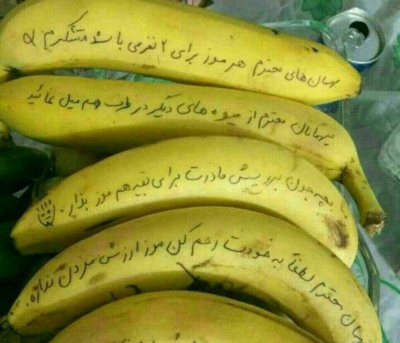 مهمان های محترم هر موز برای ۲ نفر می باشد متشکرم
میهمانان محترم از میوه های دیگر در ظرف هم میل نمائید
بچه جون برو پیش مادرت برای بقیه هم موز بذار.
مهمان محترم لطفاً به خودت رحم کن موز ارزش مردن نداره.